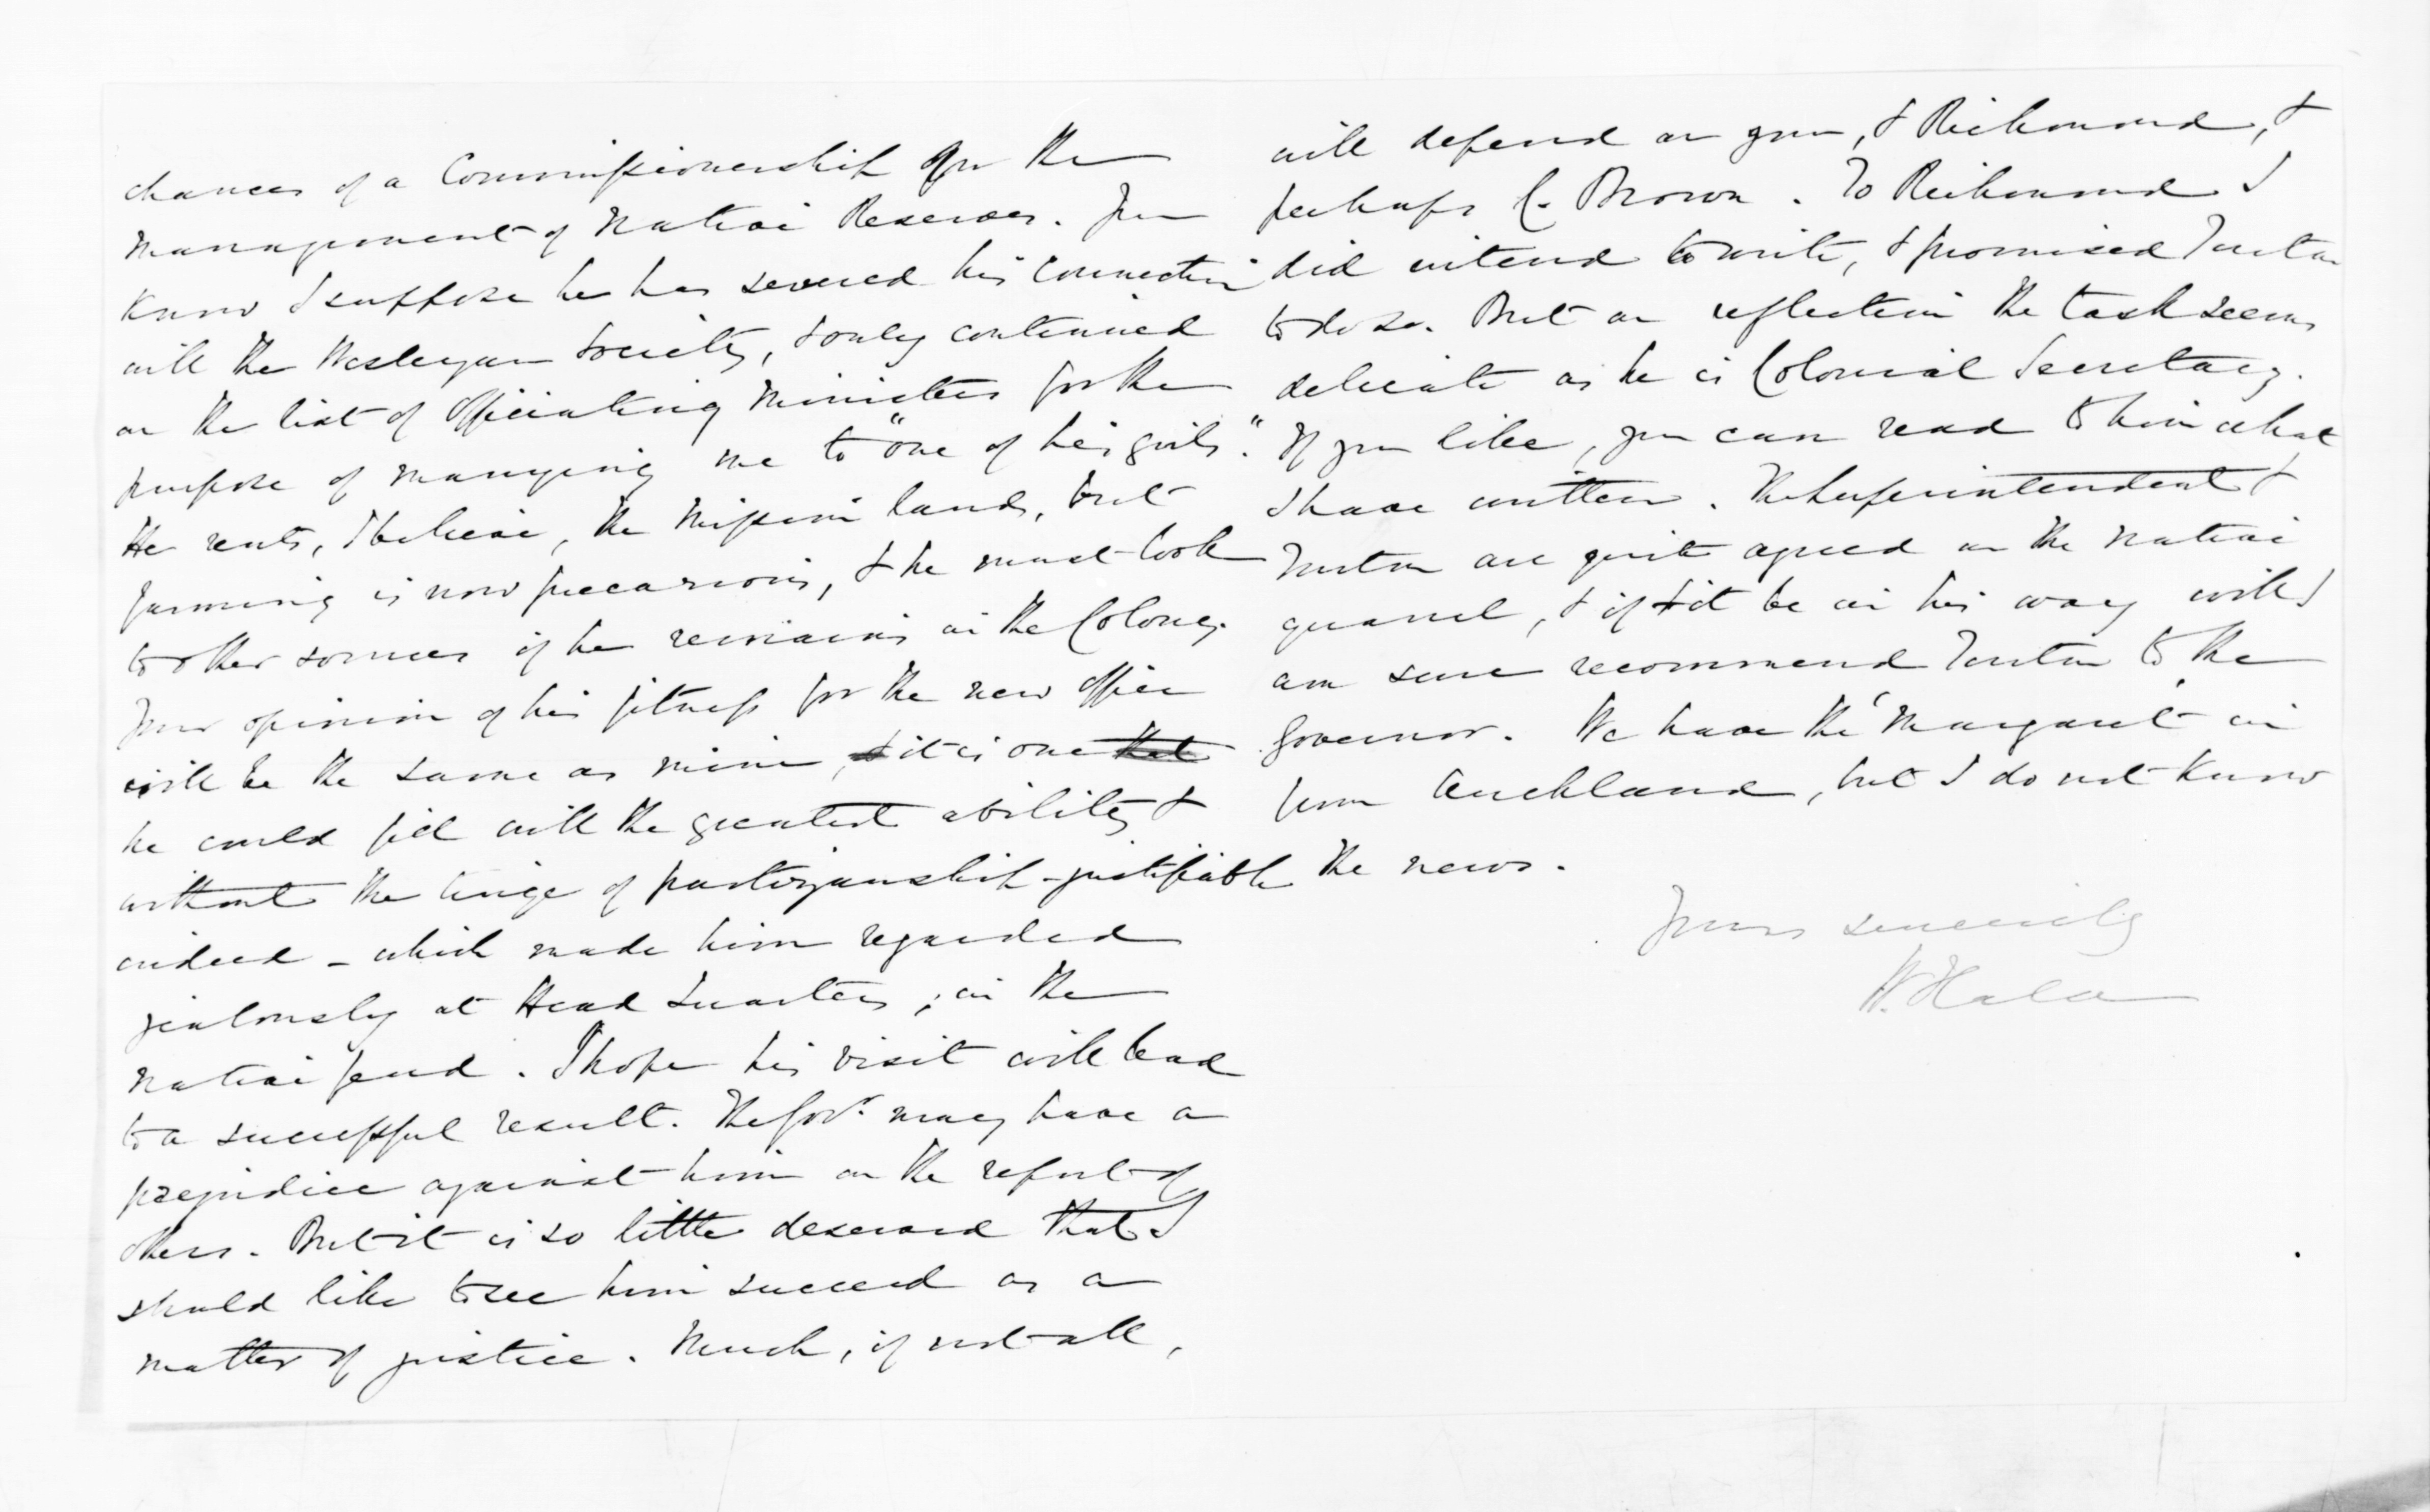 chances of a Commissionership for the
management of Native Reserves. You
know I suppose he has severed his connection
with the Wesleyan Society, & only continued
on the list of Officiating Ministers for the
purpose of marrying me to "one of his girls."
He rents, I believe, the Mission land, but
farming is now precarious, & he must look
to other sources if he remains in the Colony.
Your opinion of his fitness for the new office
will be the same as mine, & it is one that
he could fill with the greatest ability &
without the tinge of partizanship - justifiable
indeed - which made him regarded
jealously at Head Quarters; in the
native feud. I hope his visit will lead
to a successful result. The Govr. may have a
prejudice against him on the report of
others. But it is so little deserved that I
should like to see him succeed as a
matter of justice. Much, if not all,
will depend on you, & Richmond, &
perhaps C. Brown. To Richmond I
did intend to write, & promised Turton
to do so. But on reflection the task seems
delicate as he is Colonial Secretary.
If you like, you can read to him what
I have written. The Superintendent &
Turton are quite agreed on the native
quarrel, & if it be in his way will I
am sure recommend Turton to the
Governor. We have the "Margaret" in
from Auckland, but I do not know
the news.
Yours sincerely
W. Halse